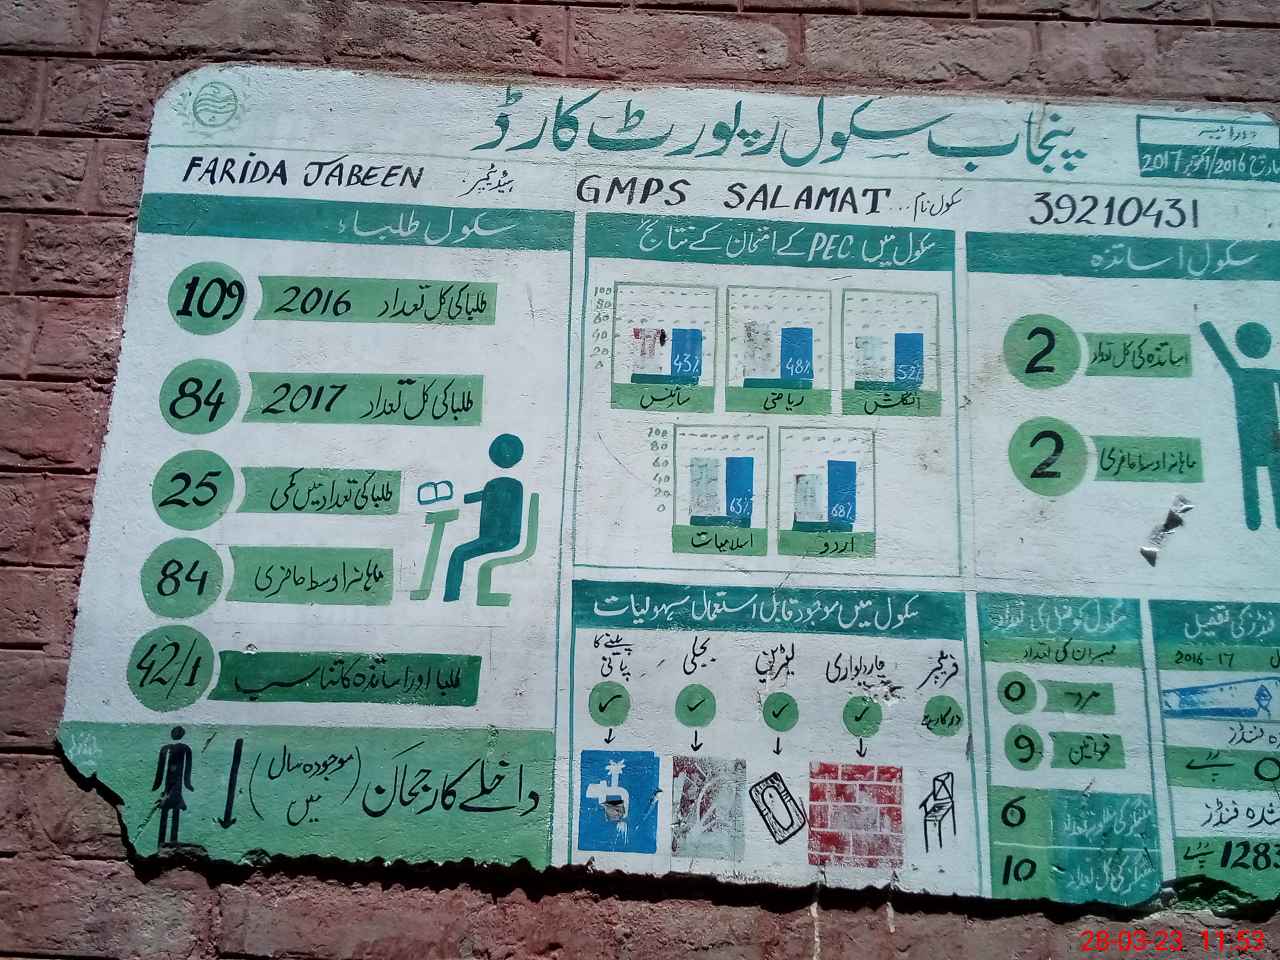 پنجاب سکول رپورٹ کارڈ
تاریخ 2016/اکتوبر 2017
FARIDA JABEEN ہیڈ ٹیچر
GMPS SALAMAT سکول نام
39210431
سکول طلباء
109 طلبا کی کل تعداد 2016
84 طلبا کی کل تعداد 2017
25 طلبا کی تعداد میں کمی
84 ماہانہ اوسط حاضری
42/1 طلبا اور اساتذہ کا تناسب
داخلے کا رجحان (موجودہ سال میں)
سکول میں PEC کے امتحان کے نتائج
100
80
60
40
20
0
43%
48%
52%
سائنس
ریاضی
انگلش
100
80
60
40
20
0
63%
68%
اسلامیات
اردو
سکول میں موجود قابل استعمال سہولیات
پینے کا پانی
بجلی
لیٹرینیں
چاردیواری
فرنیچر
درکار ہے
سکول اساتذہ
2 اساتذہ کی کل تعداد
2 ماہانہ اوسط حاضری
سکول کونسل کی تعداد
ممبران کی تعداد
0 مرد
9 خواتین
6
10
فنڈز کی تفصیل
2016-17
فنڈز
0
شدہ فنڈز
1283
28-03-23 11:53